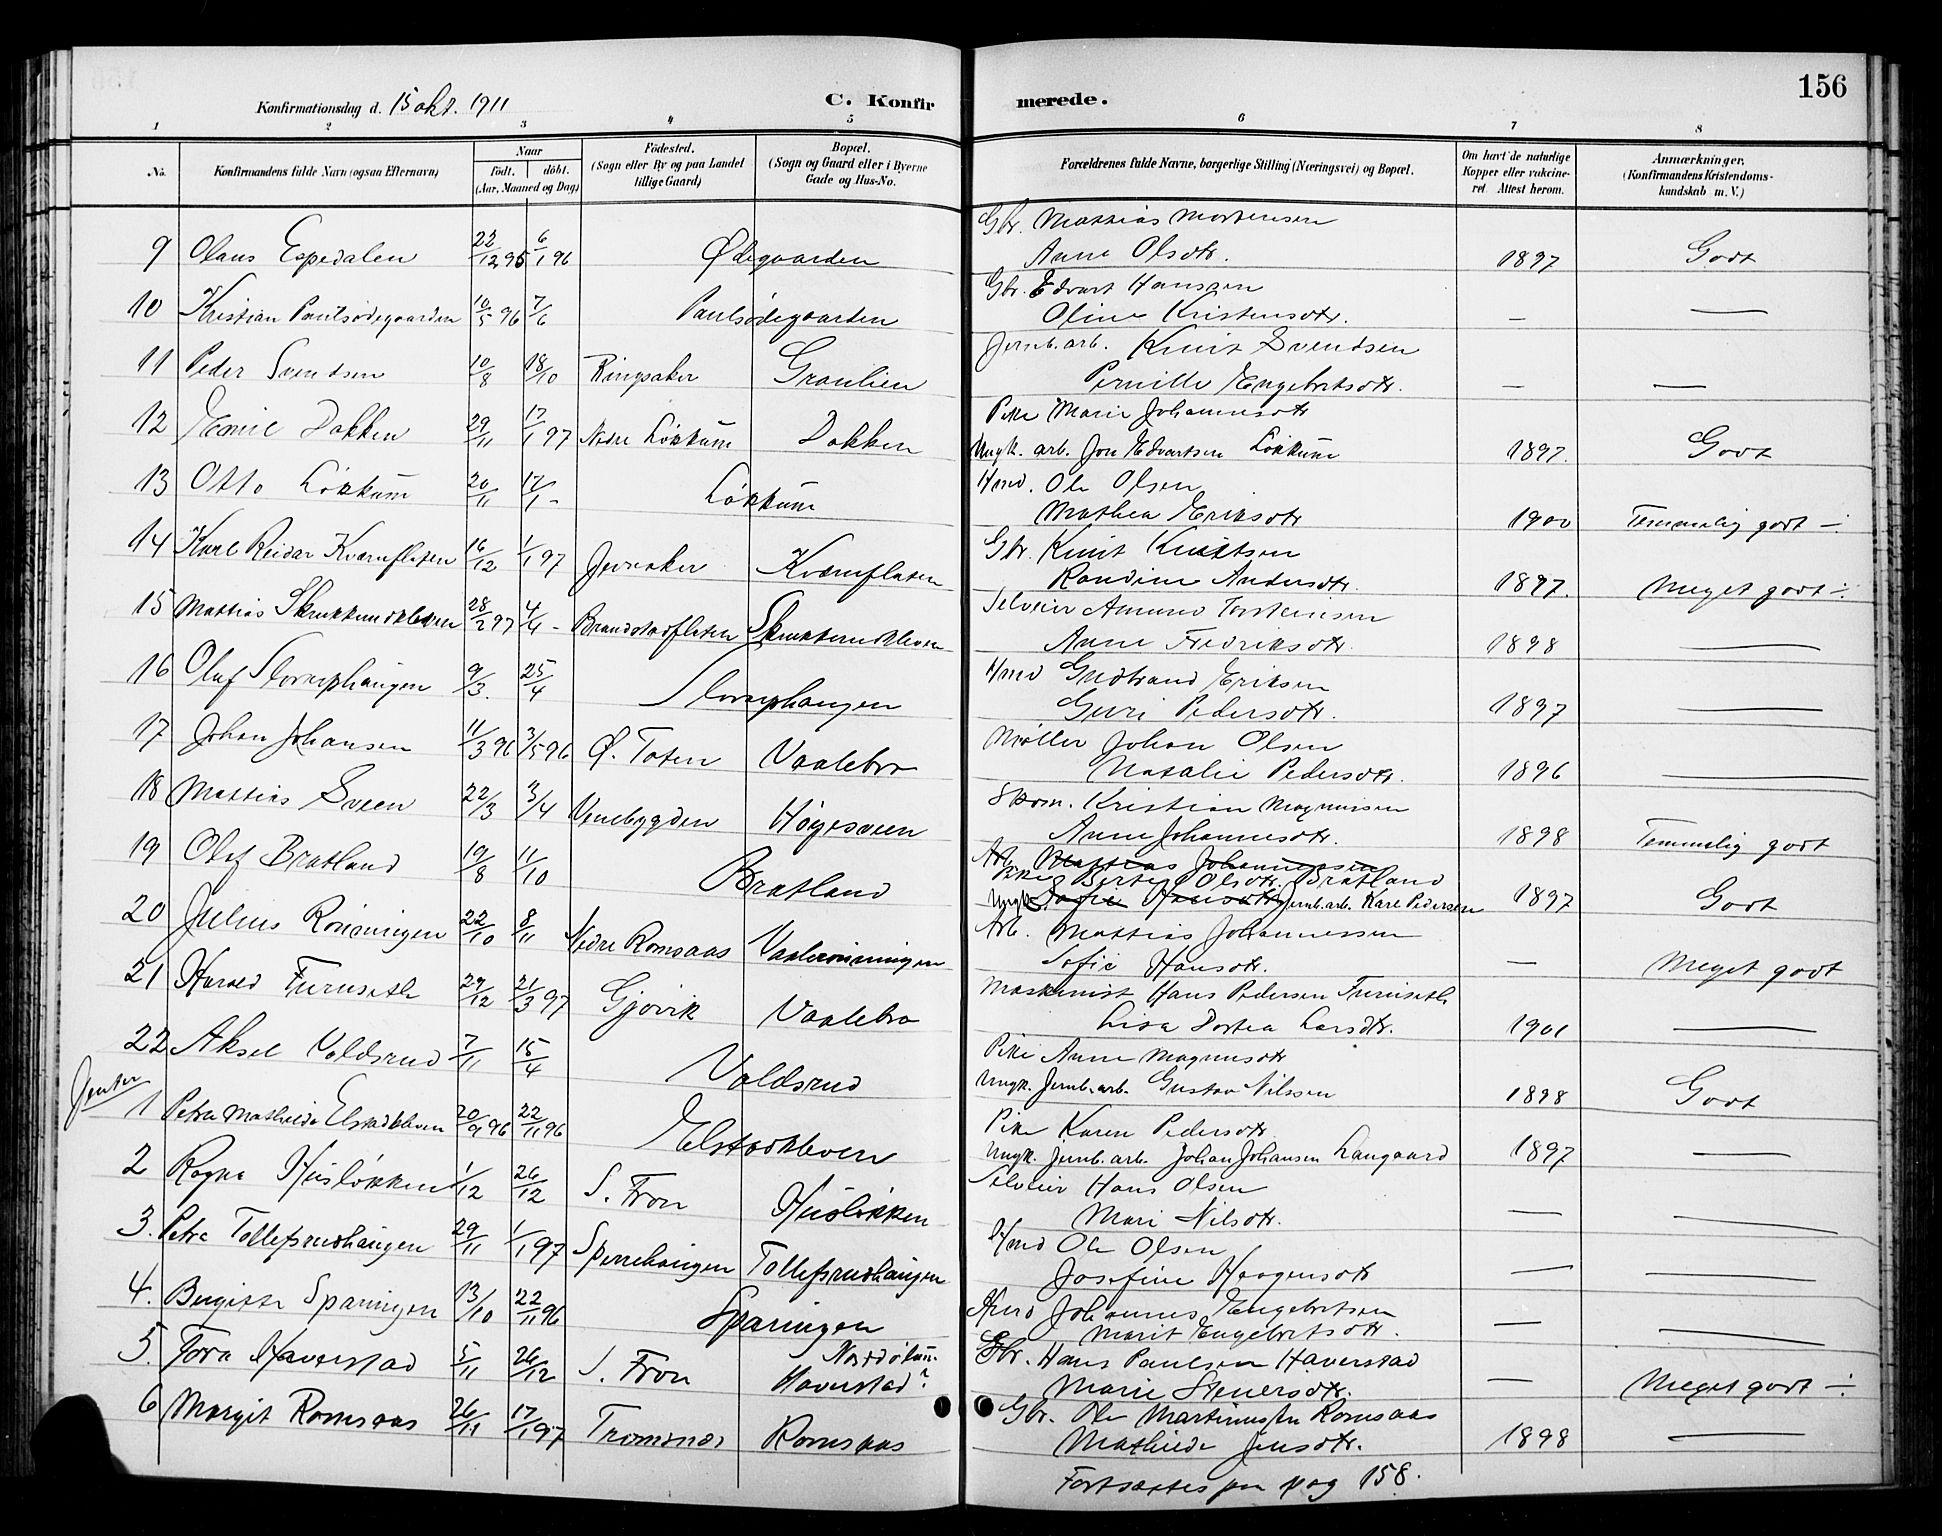 156
Konfirmationsdag d. 15 okt. 1911
C. Konfirmerede.
1 2 3 4 5 6 7 8
No.
Konfirmandens fulde Navn (ogsaa Efternavn)
Naar
födt. döbt.
(Aar, Maaned og Dag)
Födested.
(Sogn eller By og paa Landet tillige Gaard)
Bopæl.
(Sogn og Gaard eller i Byerne Gade og Hus-No.
Forældrenes fulde Navne, borgerlige Stilling (Næringsvei) og Bopæl.
Om havt de naturlige Kopper eller vakcineret. Attest herom.
Anmærkninger.
(Konfirmandens Kristendomskundskab m. V.)
9 Olaus Espedalen 22/12 95 6/1 96 Ødegaarden Gbr. Mattias Mortensen
Anne Olsdtr. 1897 Godt
10 Kristian Paulsødegaarden 10/5 96 7/6 Paulsødegaarden Gbr. Edvart Hansen
Oline Kristensdtr. — —
11 Peder Svendsen 10/8 18/10 Ringsaker Graulien Jernb.arb. Knut Svendsen
Pernille Engebretsdtr. — —
12 Emil Dokken 29/11 17/1 97 Nedre Løkkum Dokken Pike Marie Johannesdtr
Ungk. arb. Jon Edvartsen Løkkum 1897. Godt
13 Otto Løkkum 20/11 17/1 - Løkkum Hmd. Ole Olsen
Mathea Eriksdtr 1900 Temmelig godt ÷
14 Karl Reidar Kværnflaten 16/12 1/1 97 Jevnaker Kværnflaten Gbr. Knut Knutsen
Randine Andersdtr. 1897. Meget godt ÷
15 Mattias Skrukkerudkleven 28/2 97 4/4 - Brandstadflaten Skrukkerudkleven Selveier Amund Torstensen
Anne Fredriksdtr. 1898 —
16 Olaf Slorruphaugen 9/3. 25/4 Slorruphaugen Hmd Gudbrand Eriksen
Guri Pedersdtr. 1897 —
17 Johan Johansen 11/3 96 3/5 96 Ø. Toten Vaalebro Møller Johan Olsen
Natalie Pedersdtr. 1896 —
18 Mattias Sveen 22/3 3/4 Venebygden Høgesveen Skom. Kristian Magnussen
Anne Johannesdtr. 1898 Temmelig godt
19 Olaf Bratland 19/8 11/10 Bratland Arb. Mattias Johannessen
Pike Berte Olsdtr. Bratland
Ungk. Sofie Hansdtr Jernb.arb. Karl Pedersen 1897 Godt
20 Julius Rønningen 22/10 8/11 Nedre Romsaas Vaalerønningen Arb. Mattias Johannessen
Sofie Hansdtr. — Meget godt
21 Harald Furuseth 29/12 21/3 97 Gjøvik Vaalebro Maskinist Hans Pedersen Furuseth
Lisa Dortea Larsdtr. 1901 —
22 Aksel Voldsrud 7/11 15/4 Voldsrud Pike Anne Magnusdtr
Ungk. Jernb.arb. Gustav Nilssen 1898 Godt
Jenter
1 Petra Mathilde Elstadkleven 20/9 96 22/11 96 Elstadkleven Pike Karen Pedersdtr
Ungk. Jernb.arb. Johan Johansen Langaard 1897 —
2 Ragna Husløkken 1/12 26/12 S. Fron Husløkken Selveier Hans Olsen
Mari Nilsdtr. — —
3. Petra Tollefsrudhaugen 29/11 1/1 97 Sperrehaugen Tollefsrudhaugen Hmd Ole Olsen
Josefine Haagensdtr — —
4. Birgitte Sparingen 13/10 22/11 96 Sparingen Hmd Johannes Engebretsen
Marit Engebretsdtr. — —
5. Tora Haverstad 5/11 26/12 S. Fron Haverstad? Gbr. Hans Paulsen Haverstad
Marie Steversdtr. — Meget godt ÷
6 Margit Romsaas 26/11 17/1 97 Tromsnes Romsaas Gbr. Ole Martinussen Romsaas
Mathilde Jensdtr. 1898 —
Fortsættes paa pag 158.